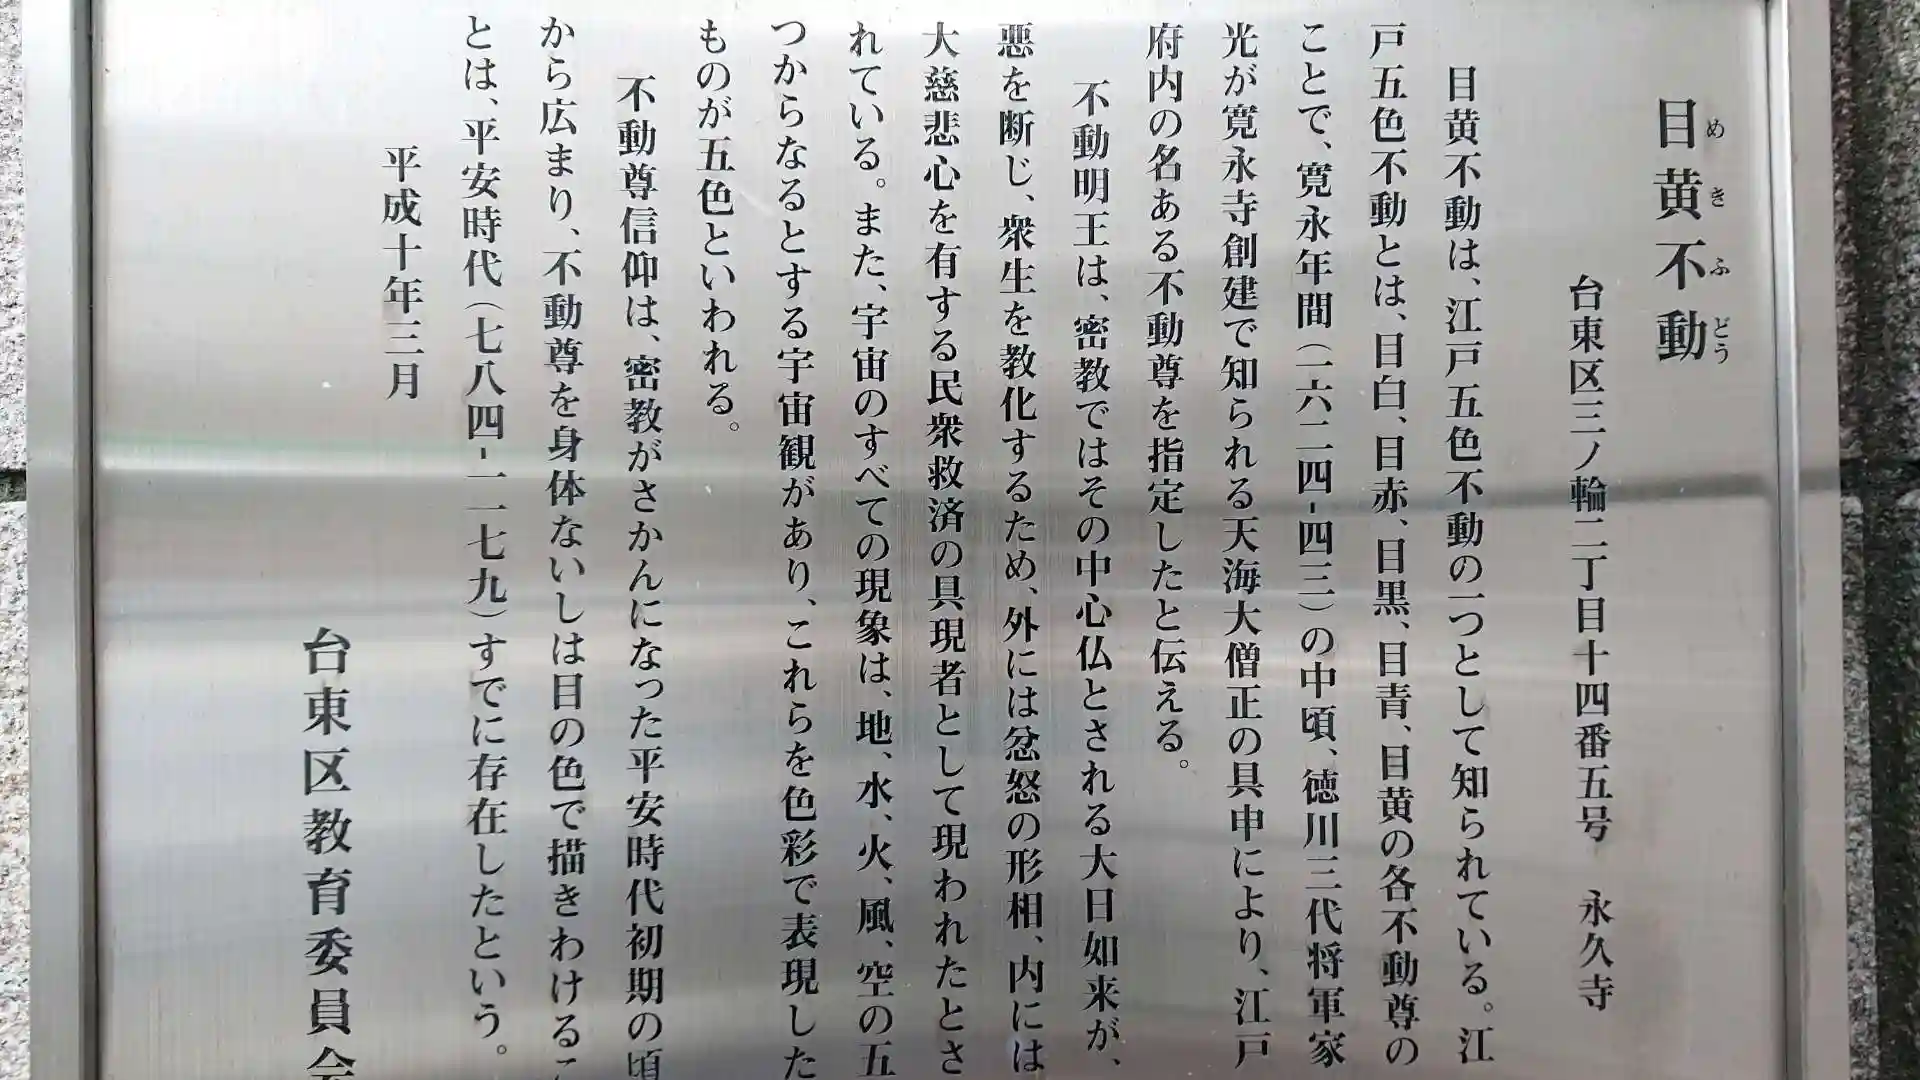 目黄不動
めきふどう
台東区三ノ輪二丁目十四番五号　永久寺
目黄不動は、江戸五色不動の一つとして知られている。江
戸五色不動とは、目白、目赤、目黒、目青、目黄の各不動尊の
ことで、寛永年間(一六二四-四三)の中頃、徳川三代将軍家
光が寛永寺創建で知られる天海大僧正の具申により、江戸
府内の名ある不動尊を指定したと伝える。
不動明王は、密教ではその中心仏とされる大日如来が、
悪を断じ、衆生を教化するため、外には忿怒の形相、内には
大慈悲心を有する民衆救済の具現者として現われたとさ
れている。また、宇宙のすべての現象は、地、水、火、風、空の五
つからなるとする宇宙観があり、これらを色彩で表現した
ものが五色といわれる。
不動尊信仰は、密教がさかんになった平安時代初期の頃
から広まり、不動尊を身体ないしは目の色で描きわけるこ
とは、平安時代(七八四-一一七九)すでに存在したという。
平成十年三月
台東区教育委員会